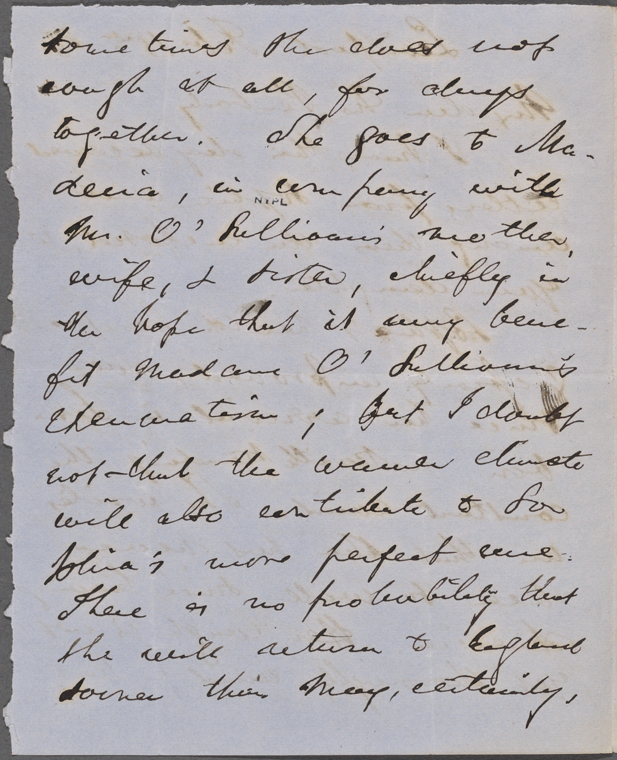 sometimes she does not
cough at all, for days
together. She goes to Ma-
deira, in company with
NYPL
Mr. O'Sullivan's mother,
wife, & sister, chiefly in
the hope that it may bene-
fit Madame O'Sullivan's
rheumatism; but I doubt
not that the warmer climate
will also contribute to So-
phia's more perfect cure.
There is no probability that
she will return to England
sooner than May, certainly,